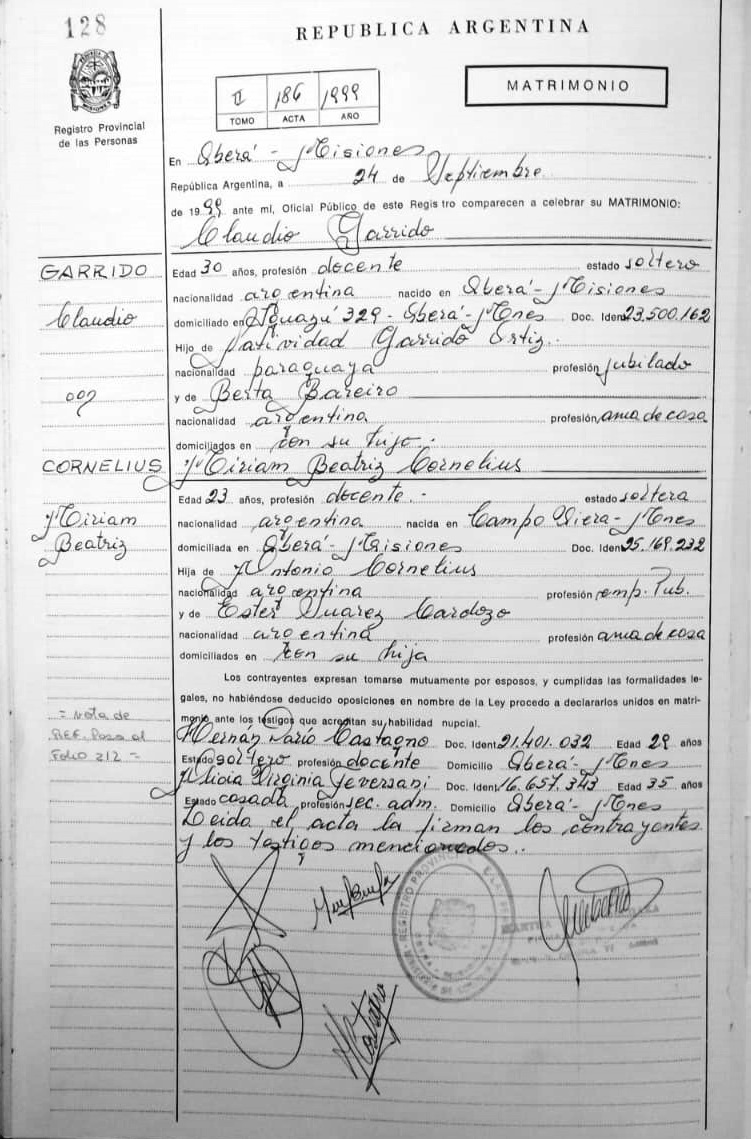 128
REPUBLICA ARGENTINA
MATRIMONIO
II 186 1999
TOMO ACTA AÑO
Registro Provincial
de las Personas
En Oberá - Misiones
República Argentina, a 24 de Septiembre
de 1999 ante mí, Oficial Público de este Registro comparecen a celebrar su MATRIMONIO:
Claudio Garrido
GARRIDO
Edad 30 años, profesión docente estado soltero
nacionalidad argentina nacido en Oberá - Misiones
Claudio
domiciliado en Yguazú 329 - Oberá - Mnes Doc. Ident 23.500.162
Hijo de Natividad Garrido Ortiz.
nacionalidad paraguaya profesión jubilado
y de Berta Bareiro
nacionalidad argentina profesión ama de casa
domiciliados en con su hijo.
CORNELIUS
Miriam Beatriz Cornelius
Edad 23 años, profesión docente.- estado soltera
Miriam
nacionalidad argentina nacida en Campo Viera - Mnes
Beatriz
domiciliada en Oberá - Misiones Doc. Ident 25.169.232
Hija de Antonio Cornelius
nacionalidad argentina profesión emp. Pub.
y de Ester Suarez Cardozo
nacionalidad argentina profesión ama de casa
domiciliados en con su hija
Los contrayentes expresan tomarse mutuamente por esposos, y cumplidas las formalidades le-
gales, no habiéndose deducido oposiciones en nombre de la Ley procedo a declararlos unidos en matri-
monio ante los testigos que acreditan su habilidad nupcial.
= Nota de
REF. Pasa al
Folio 212 =
Hernán Darío Castagno Doc. Ident 21.401.032 Edad 29 años
Estado soltero profesión docente Domicilio Oberá - Mnes
Alicia Virginia Doc. Ident 16.657.343 Edad 35 años
Estado casada profesión sec. adm. Domicilio Oberá - Mnes
Leida el acta la firman los contrayentes
y los testigos mencionados..